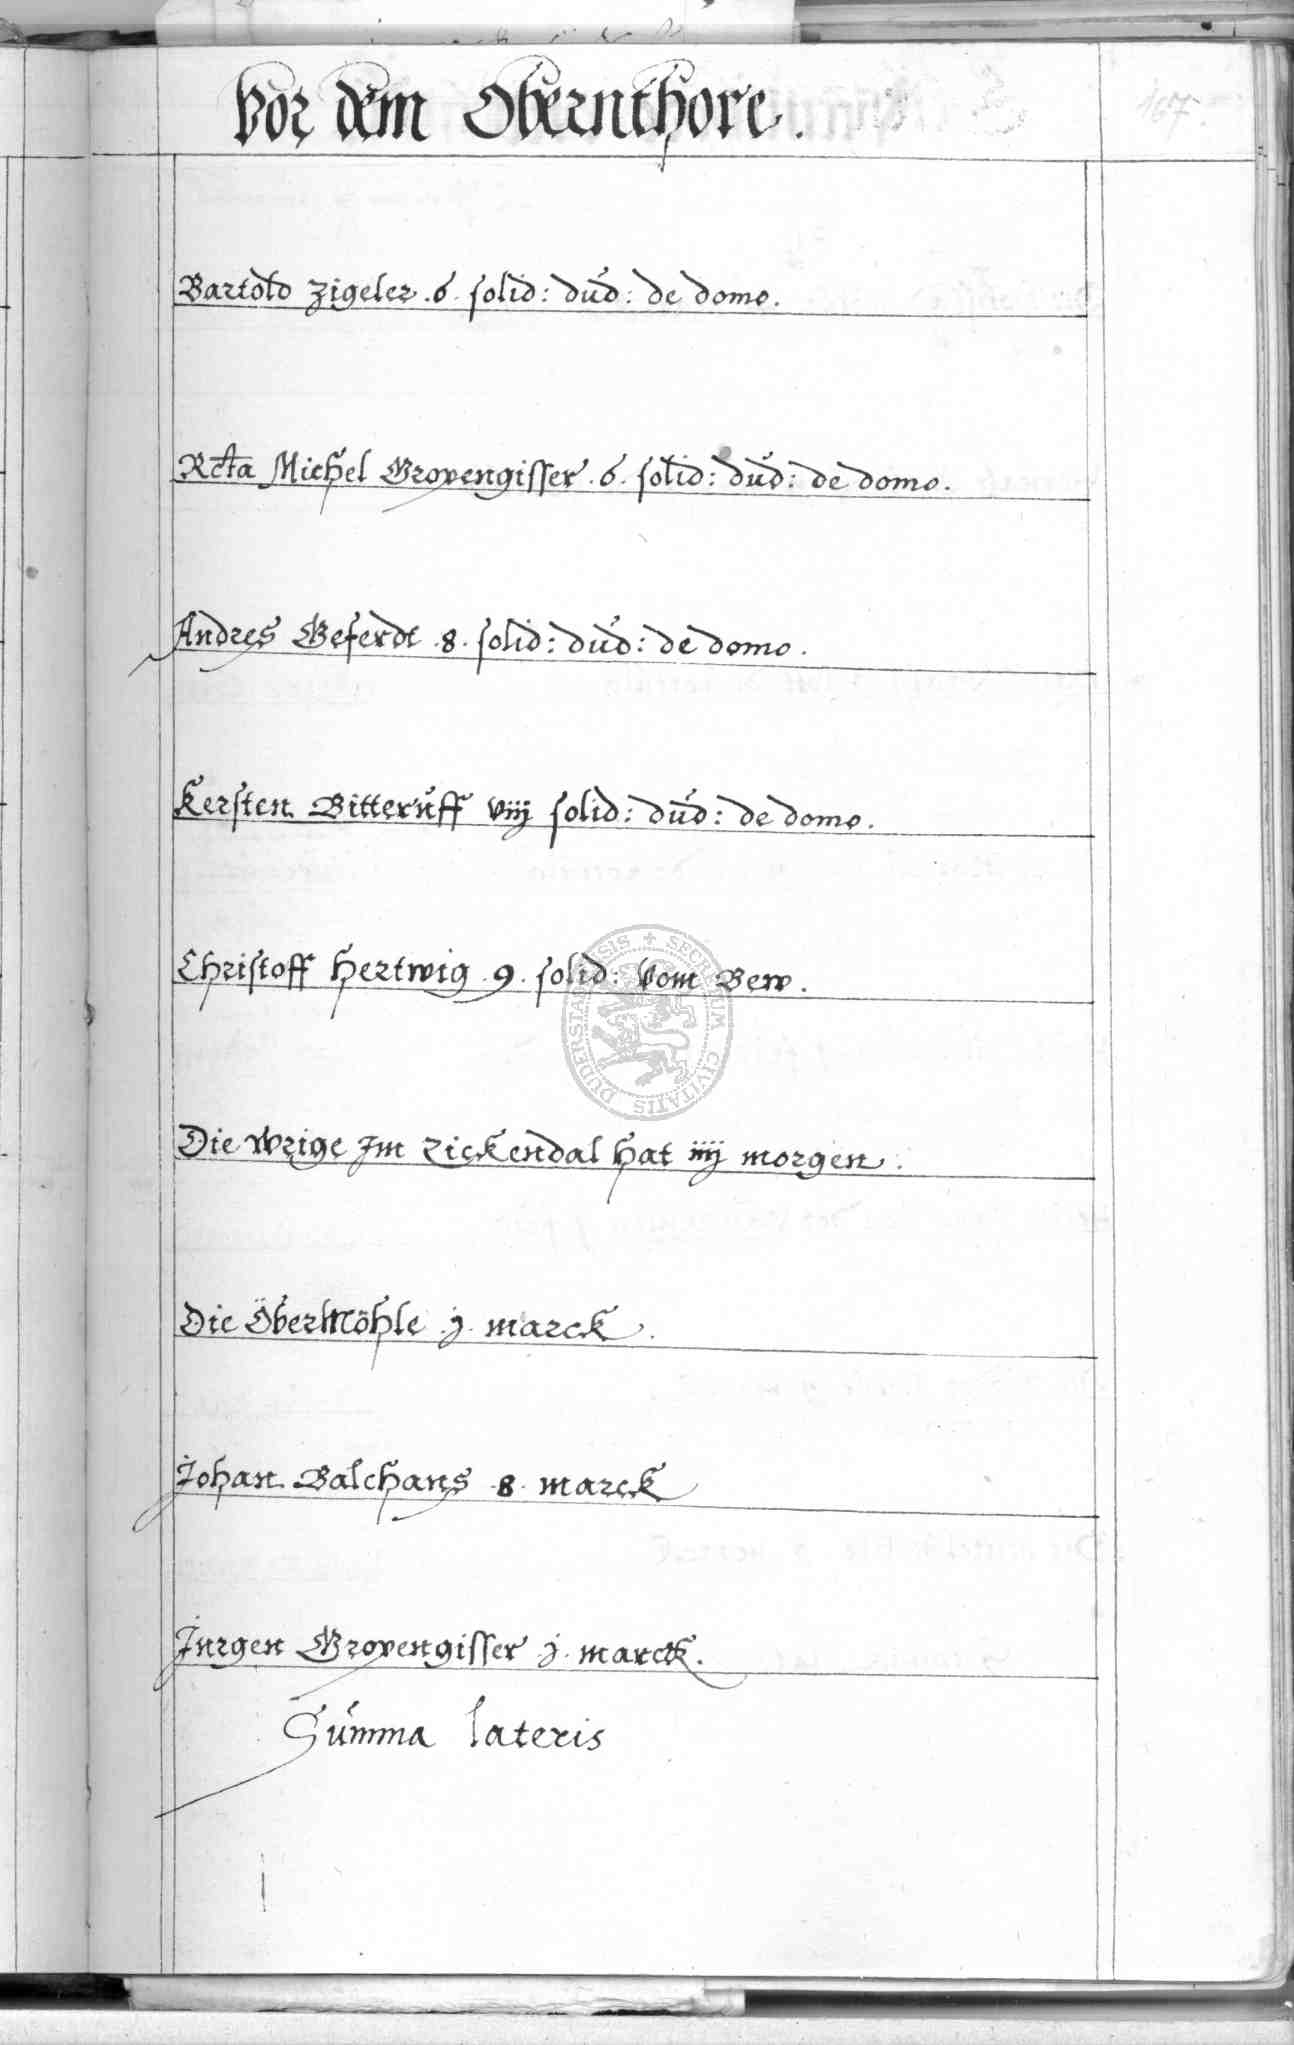 Vor dem Obernthore.
167.
Bartold Zigeler .6. solid: dud: de domo.
Rcta Michel Gropengisser .6. solid: dud: de domo.
Andres Geferdt .8. solid: dud: de domo.
Kersten Bitteruff viij solid: dud: de domo.
Christoff Hertwig .9. solid: vom Bew.
Die Wrige Im Zickendal hat iiij morgen.
Die ÖberMöhle .j. marck.
Johan Balchans .8. marck
Jurgen Gropengisser .j. marck.
Summa lateris
SECRETUM CIVITATIS DUDERSTADENSIS